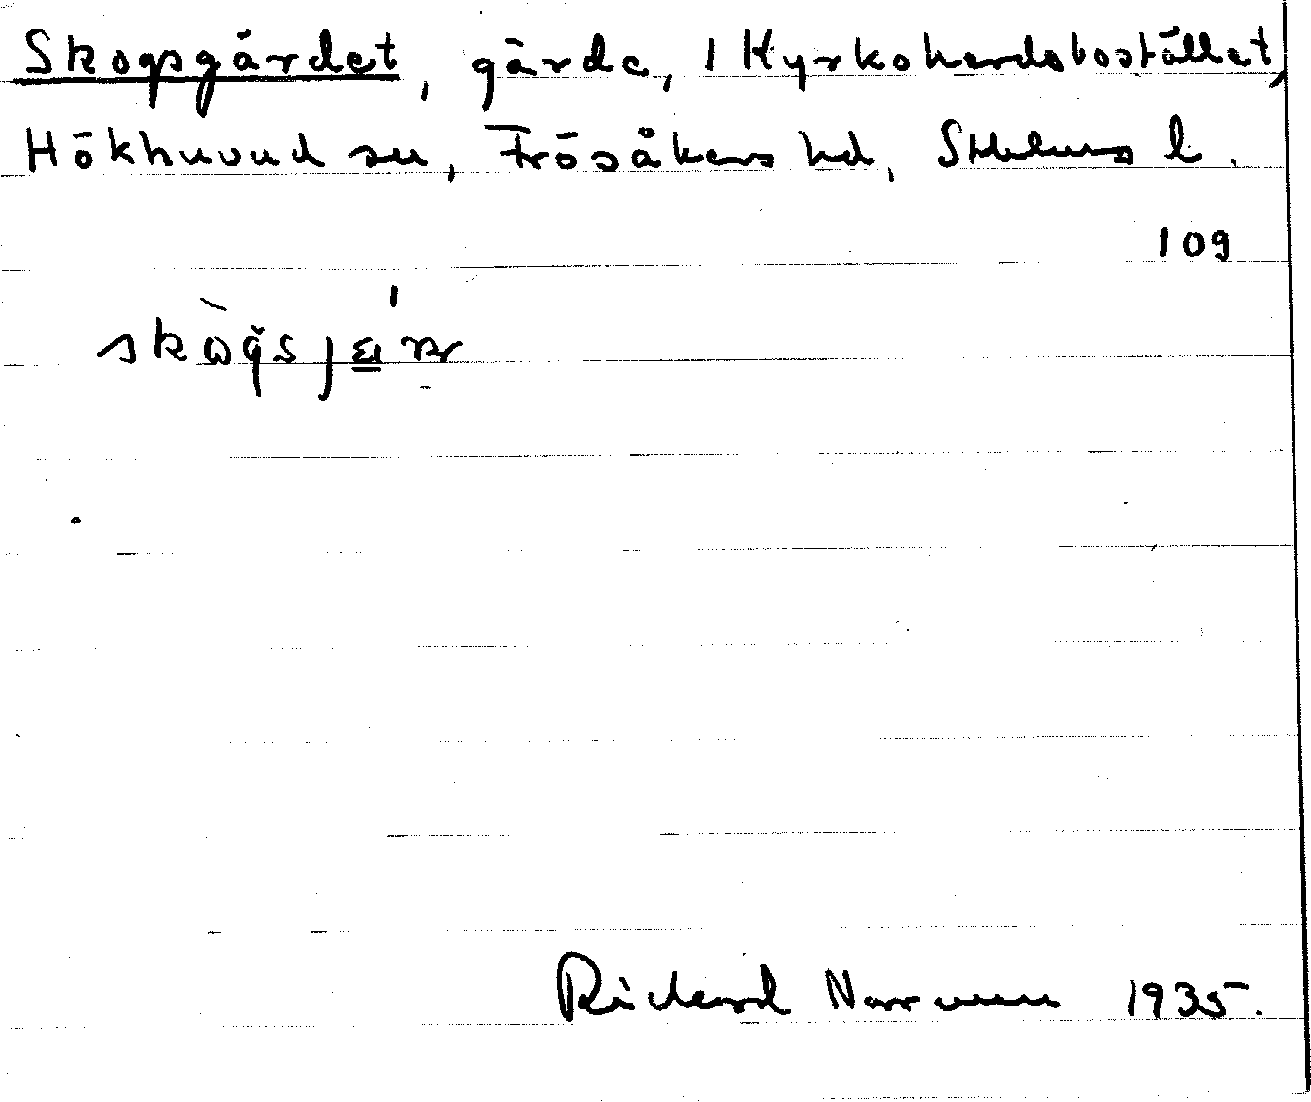 Skogsgärdet, gärde, 1 Kyrkoherdsbostället,
Hökhuvud sn, Frösåkers hd, Sthlms l.
109
Rickard Norrman 1935.